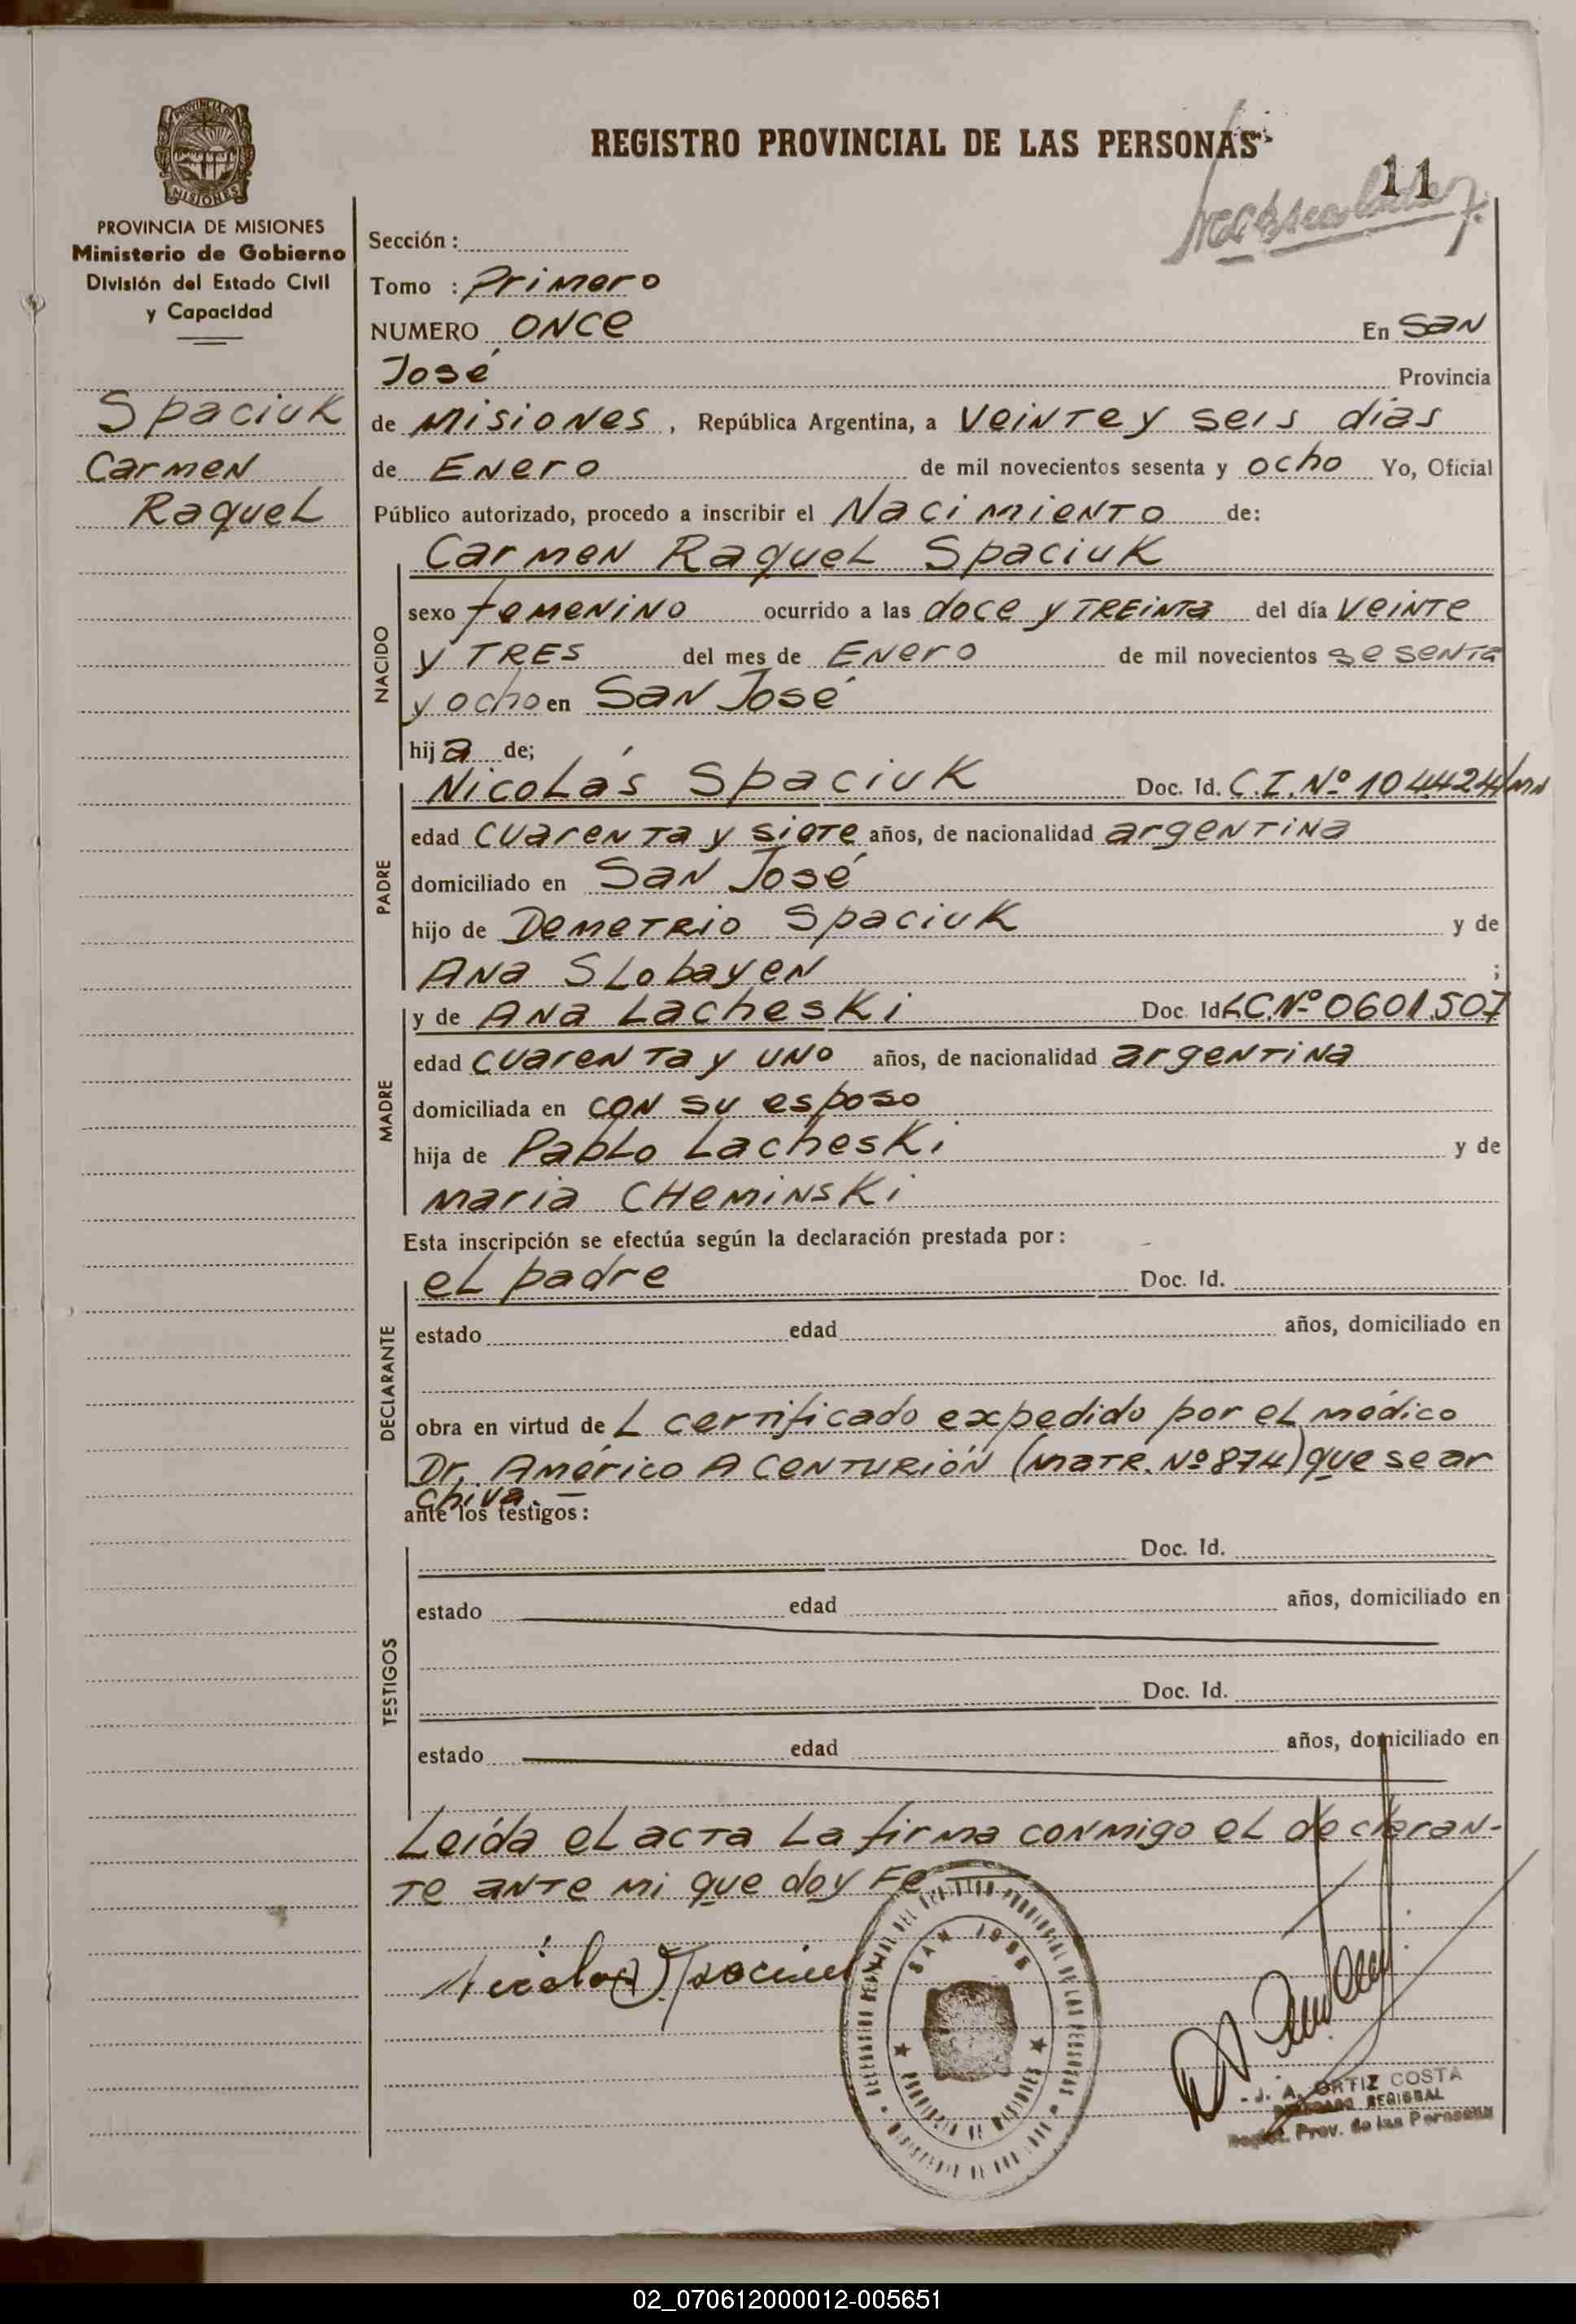 REGISTRO PROVINCIAL DE LAS PERSONAS
11
PROVINCIA DE MISIONES
Ministerio de Gobierno
División del Estado Civil
y Capacidad
Spaciuk
Carmen
Raquel
Sección :
Tomo : Primero
NUMERO ONCE En San
José Provincia
de Misiones, República Argentina, a veinte y seis días
de Enero de mil novecientos sesenta y ocho Yo, Oficial
Público autorizado, procedo a inscribir el Nacimiento de:
Carmen Raquel Spaciuk
NACIDO
sexo femenino ocurrido a las doce y treinta del día veinte
y tres del mes de Enero de mil novecientos sesenta
y ocho en San José
hija de;
PADRE
Nicolás Spaciuk Doc. Id. C.I. Nº 104424/Mn
edad cuarenta y siete años, de nacionalidad argentina
domiciliado en San José
hijo de Demetrio Spaciuk y de
Ana Slobayen ;
MADRE
y de Ana Lacheski Doc. Id L.C. Nº 0601.507
edad cuarenta y uno años, de nacionalidad argentina
domiciliada en con su esposo
hija de Pablo Lacheski y de
Maria Cheminski
Esta inscripción se efectúa según la declaración prestada por :
DECLARANTE
el padre Doc. Id.
estado edad años, domiciliado en
obra en virtud de l certificado expedido por el médico
Dr. Américo A Centurión (Matr. Nº 874) que se ar
chiva.
ante los testigos :
TESTIGOS
Doc. Id.
estado edad años, domiciliado en
Doc. Id.
estado edad años, domiciliado en
Leída el acta la firma conmigo el declaran-
te ante mi que doy Fe
Nicolas Spaciuk
PROVINCIA DE MISIONES
J. A. ORTIZ COSTA
DELEGADO REGIONAL
Regist. Prov. de las Personas
02_070612000012-005651